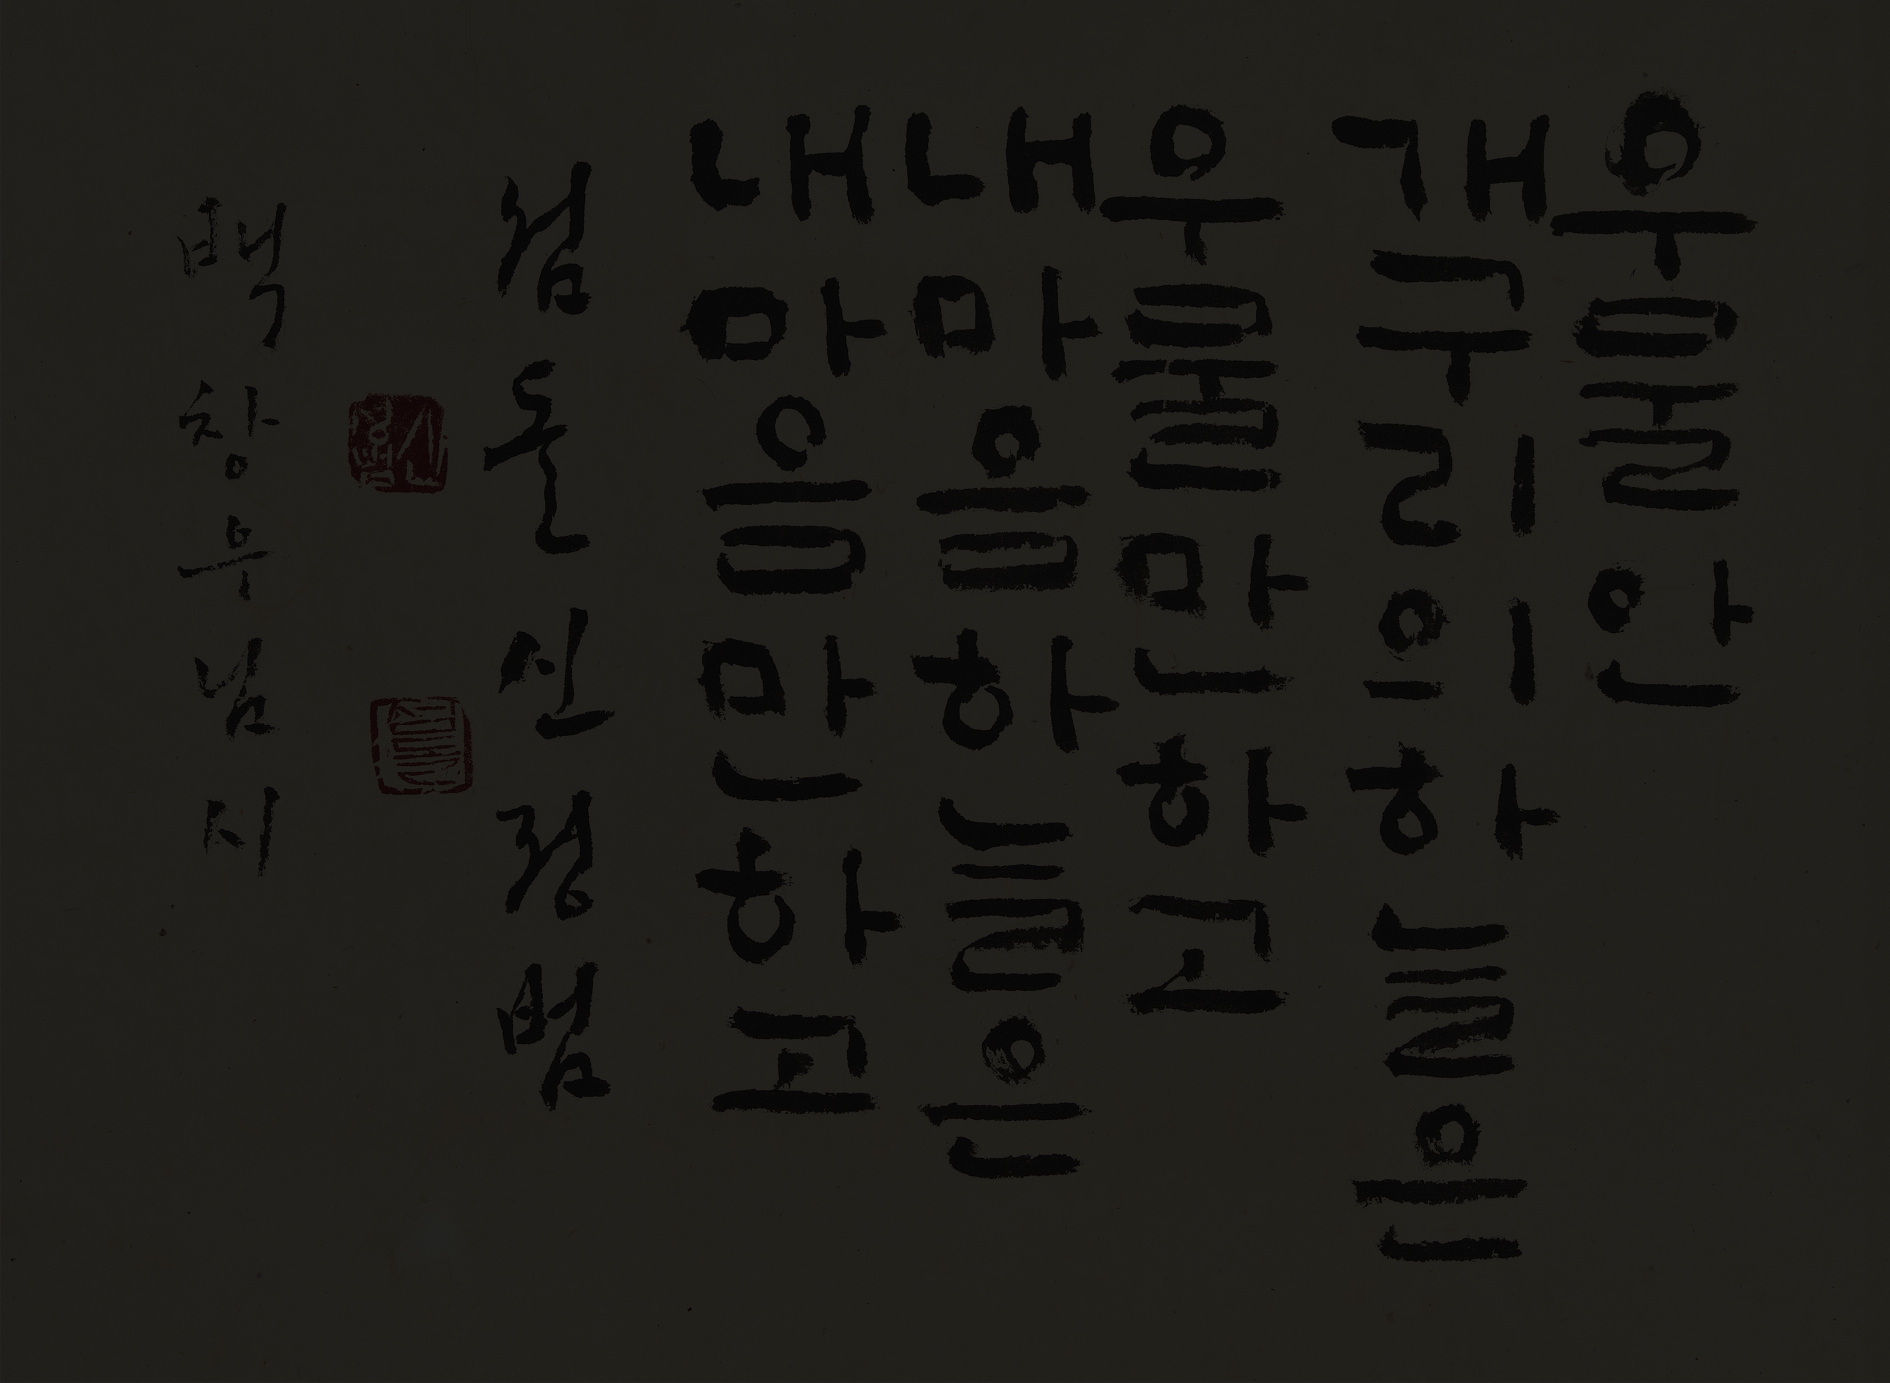 우물안
개구리의하늘은
우물만하고
내마음하늘은
내마음만하고
검돌신정범
백창우님시